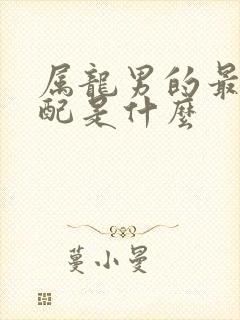 属龍男的最
配是什麼
蔓小曼